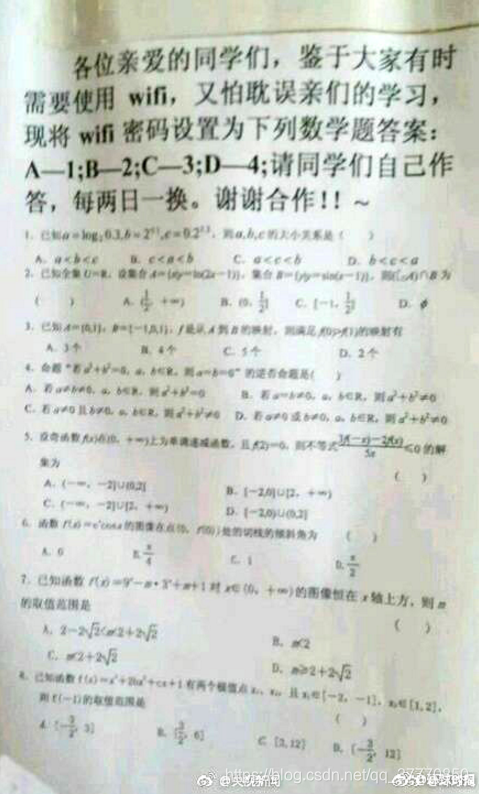 各位亲爱的同学们，鉴于大家有时
需要使用 wifi，又怕耽误亲们的学习，
现将 wifi 密码设置为下列数学题答案：
A—1;B—2;C—3;D—4;请同学们自己作
答，每两日一换。谢谢合作！！～
1. 已知a=log₂0.3,b=2^0.1,c=0.2^1.3，则a,b,c的大小关系是（ ）
A. a<b<c B. c<a<b C. a<c<b D. b<c<a
2. 已知全集 U=R，设集合 A={x|y=ln(2x-1)}，集合 B={y|y=sin(x-1)}，则(C_uA)∩B 为
（ ） A. (1/2, +∞) B. (0, 1/2] C. [-1, 1/2] D. ϕ
3. 已知 A={0,1}，B={-1,0,1}，f是从 A 到 B 的映射，则满足 f(0)>f(1)的映射有
A. 3个 B. 4个 C. 5个 D. 2个
4. 命题“若 a²+b²=0，a，b∈R，则 a=b=0”的逆否命题是（ ）
A. 若 a≠b≠0，a，b∈R，则 a²+b²=0 B. 若 a=b≠0，a，b∈R，则 a²+b²≠0
C. 若 a≠0 且 b≠0，a，b∈R，则 a²+b²≠0 D. 若 a≠0 或 b≠0，a，b∈R，则 a²+b²≠0
5. 设奇函数 f(x)在(0，+∞)上为单调递减函数，且 f(2)=0，则不等式 (3f(-x)-2f(x))/5x ≤0 的解
集为 （ ）
A. (-∞，-2]∪(0,2] B. [-2,0]∪[2，+∞)
C. (-∞，-2]∪[2，+∞) D. [-2,0)∪(0,2]
6. 函数 f(x)=eˣcosx 的图像在点(0，f(0))处的切线的倾斜角为 （ ）
A. 0 B. π/4 C. 1 D. π/2
7. 已知函数 f(x)=9ˣ-m·3ˣ+m+1 对 x∈(0，+∞)的图像恒在 x 轴上方，则 m
的取值范围是 （ ）
A. 2-2√2<m<2+2√2 B. m<2
C. m<2+2√2 D. m≥2+2√2
8. 已知函数 f(x)=x³+2bx²+cx+1 有两个极值点 x₁，x₂，且 x₁∈[-2，-1]，x₂∈[1,2]，
则 f(-1)的取值范围是 （ ）
A. [-3/2, 3] B. [3/2, 6] C. [3,12] D. [-3/2, 12]
@央视新闻